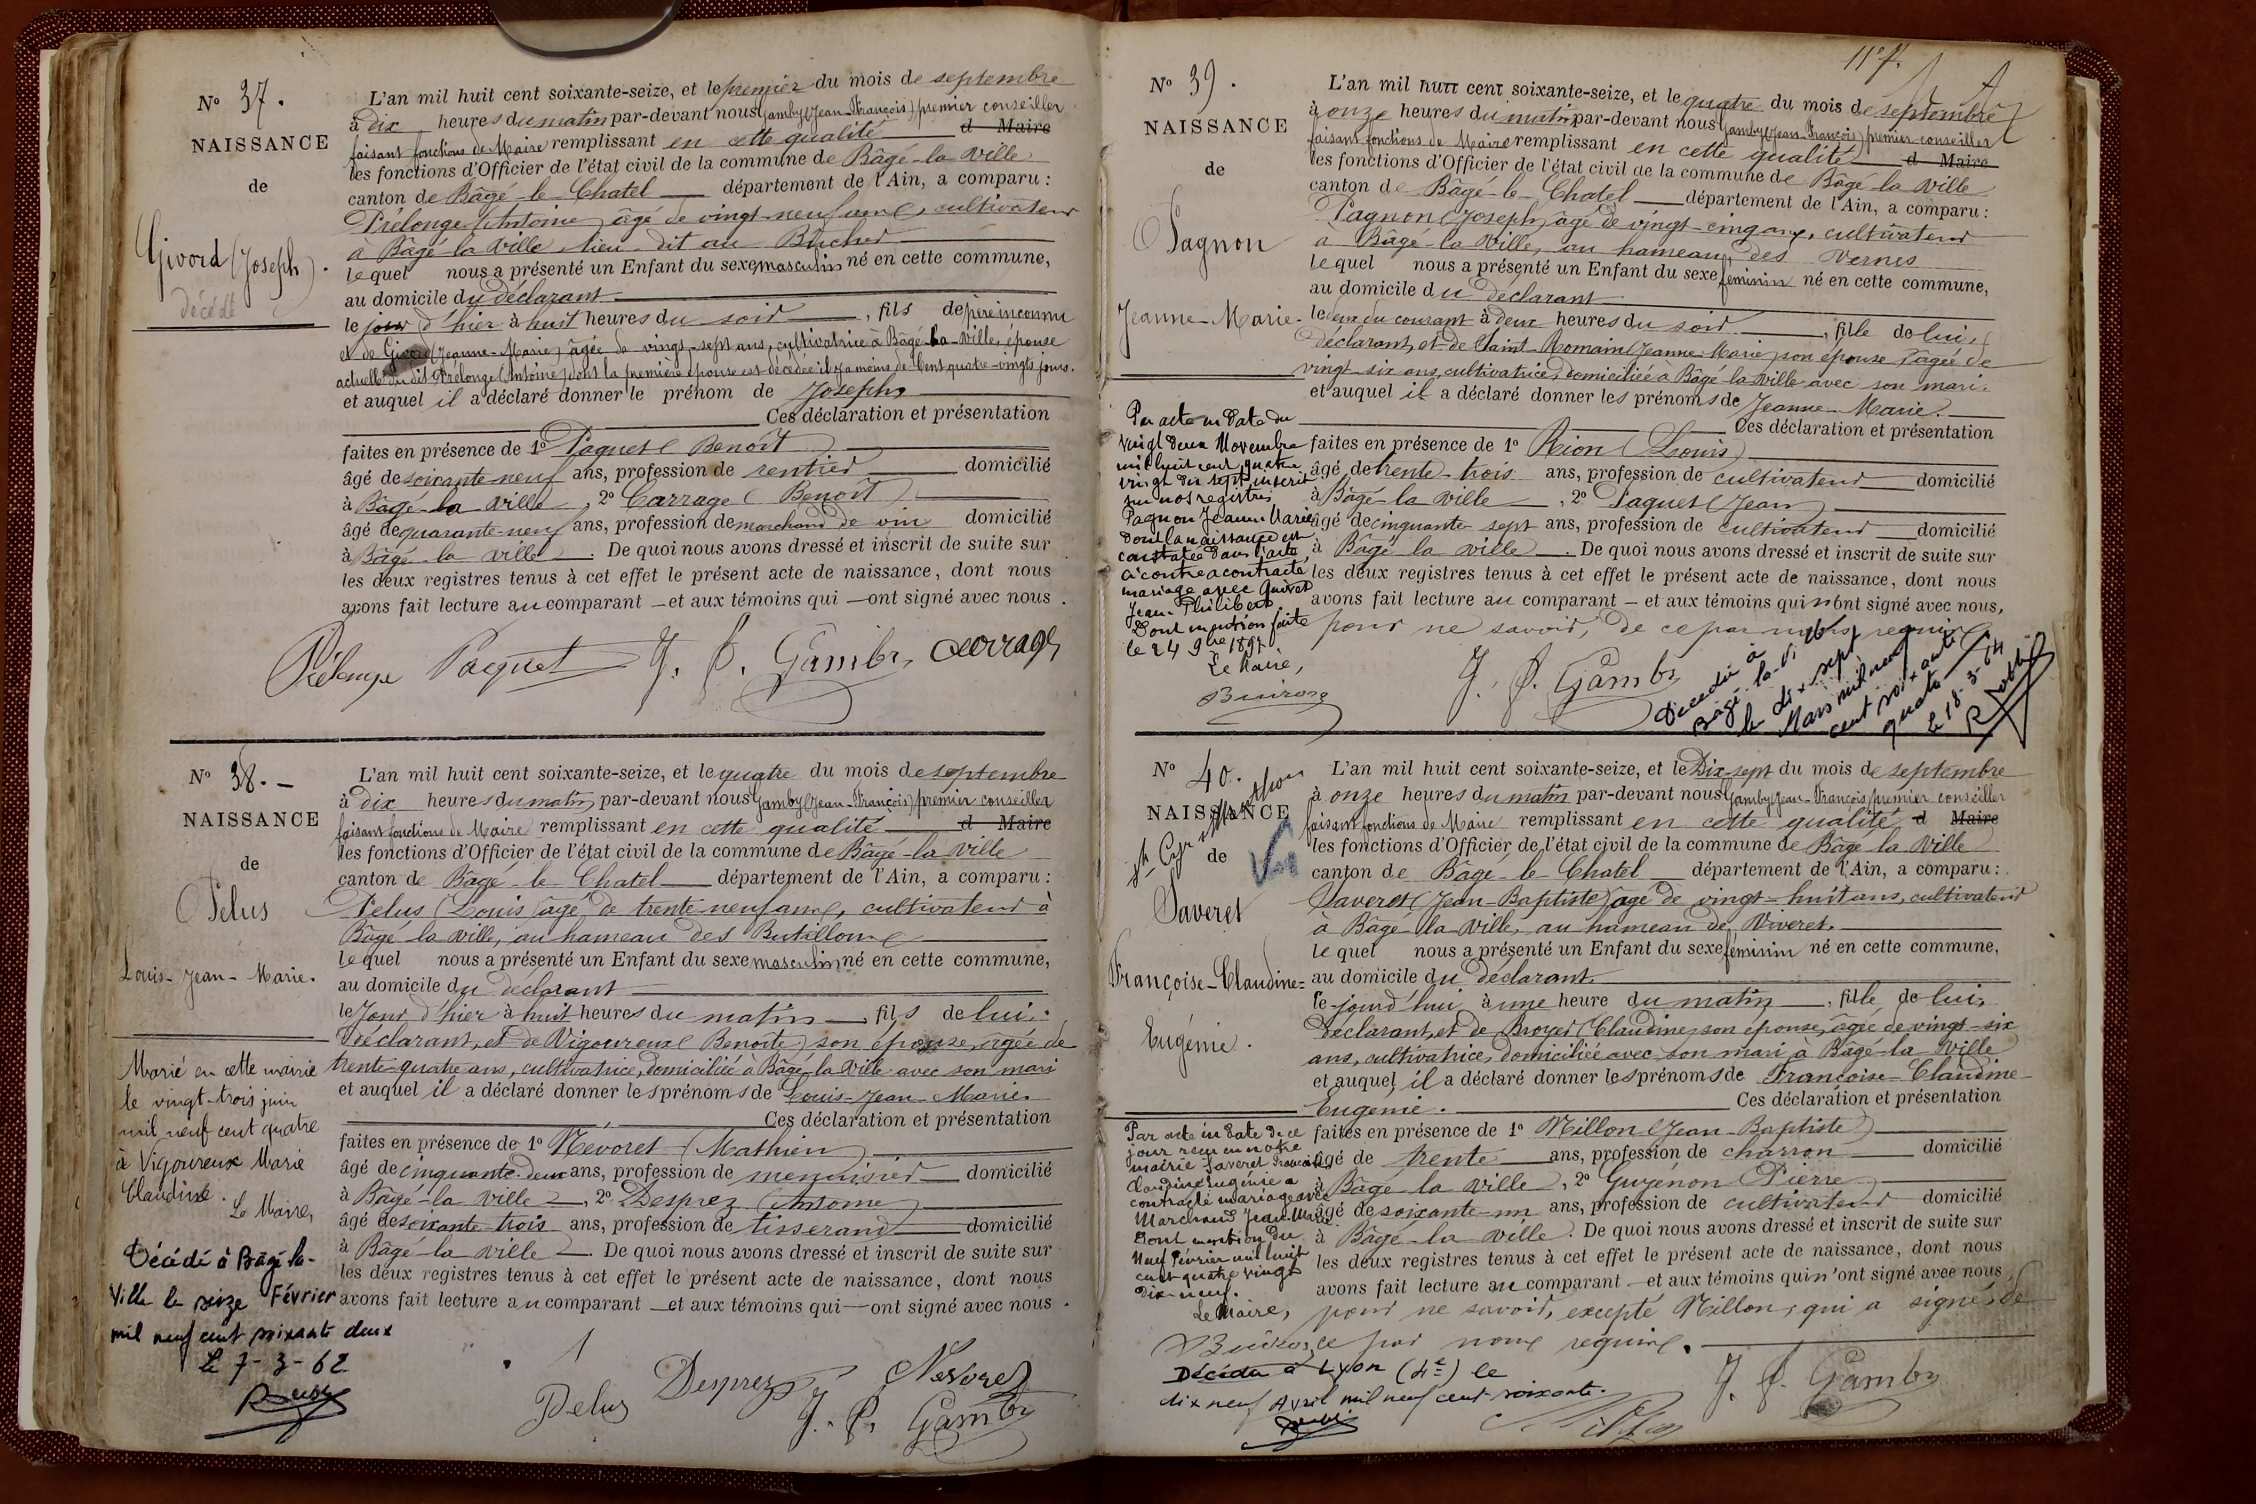 N° 37.
NAISSANCE
de
Givord (Joseph).
décédé
L'an mil huit cent soixante-seize, et le premier du mois de septembre
à dix heures du matin par-devant nous Gamby (Jean-François) premier conseiller
faisant fonctions de Maire remplissant en cette qualité d Maire
les fonctions d'Officier de l'état civil de la commune de Bâgé-la Ville
canton de Bâgé-le-Chatel département de l'Ain, a comparu :
Prélonge (Antoine) âgé de vingt-neuf ans, cultivateur
à Bâgé-la Ville, lieu-dit au Bûcher
lequel nous a présenté un Enfant du sexe masculin né en cette commune,
au domicile du déclarant
le jour d'hier à huit heures du soir, fils de père inconnu
et de Givord (Jeanne-Marie) âgée de vingt-sept ans, cultivatrice à Bâgé-la-Ville, épouse
actuelle du dit Prélonge (Antoine) dont la première épouse est décédée il y a moins de Cent quatre-vingts jours.
et auquel il a déclaré donner le prénom de Joseph
Ces déclaration et présentation
faites en présence de 1° Paquet (Benoît)
âgé de soixante-neuf ans, profession de rentier domicilié
à Bâgé-la Ville, 2° Carrage (Benoît)
âgé de quarante-neuf ans, profession de marchand de vin domicilié
à Bâgé-la Ville. De quoi nous avons dressé et inscrit de suite sur
les deux registres tenus à cet effet le présent acte de naissance, dont nous
avons fait lecture au comparant et aux témoins qui ont signé avec nous.
Prélonge Paquet J. F. Gamby Carrage
N° 38.
NAISSANCE
de
Pelus
Louis-Jean-Marie.
Marié en cette mairie
le vingt-trois juin
mil neuf cent quatre
à Vigoureux Marie
Claudine.
Le Maire,
Décédé à Bâgé-la-
Ville le seize Février
mil neuf cent soixante deux
Le 7-3-62
L'an mil huit cent soixante-seize, et le quatre du mois de septembre
à dix heures du matin par-devant nous Gamby (Jean-François) premier conseiller
faisant fonctions de Maire remplissant en cette qualité d Maire
les fonctions d'Officier de l'état civil de la commune de Bâgé-la Ville
canton de Bâgé-le-Chatel département de l'Ain, a comparu :
Pelus (Louis) âgé de trente-neuf ans, cultivateur à
Bâgé-la Ville, au hameau des Butillons
lequel nous a présenté un Enfant du sexe masculin né en cette commune,
au domicile du déclarant
le Jour d'hier à huit heures du matin, fils de lui,
déclarant, et de Vigoureux (Benoîte) son épouse, âgée de
trente-quatre ans, cultivatrice, domiciliée à Bâgé-la Ville avec son mari
et auquel il a déclaré donner les prénoms de Louis-Jean-Marie.
Ces déclaration et présentation
faites en présence de 1° Névoret (Mathieu)
âgé de cinquante-deux ans, profession de menuisier domicilié
à Bâgé-la Ville, 2° Desprez (Antoine)
âgé de soixante-trois ans, profession de tisserand domicilié
à Bâgé-la Ville. De quoi nous avons dressé et inscrit de suite sur
les deux registres tenus à cet effet le présent acte de naissance, dont nous
avons fait lecture au comparant et aux témoins qui ont signé avec nous.
Pelus Desprez Nevoret
J. F. Gamby
11e f.
N° 39.
NAISSANCE
de
Pagnon
Jeanne-Marie.
Par acte en date du
vingt deux Novembre
mil huit cent quatre
vingt dix sept inscrit
sur nos registres
Pagnon Jeanne Marie
dont la naissance est
constatée dans l'acte
ci contre a contracté
mariage avec Guivet
Jean-Philibert
Dont mention faite
le 24 9bre 1897
Le Maire,
Buiron
L'an mil huit cent soixante-seize, et le quatre du mois de septembre
à onze heures du matin par-devant nous Gamby (Jean-François) premier conseiller
faisant fonctions de Maire remplissant en cette qualité d Maire
les fonctions d'Officier de l'état civil de la commune de Bâgé-la Ville
canton de Bâgé-le-Chatel département de l'Ain, a comparu :
Pagnon (Joseph) âgé de vingt-cinq ans, cultivateur
à Bâgé-la Ville, au hameau des Vernes
lequel nous a présenté un Enfant du sexe féminin né en cette commune,
au domicile du déclarant
le deux du courant à deux heures du soir, fille de lui,
déclarant, et de Saint-Romain (Jeanne-Marie) son épouse, âgée de
vingt-six ans, cultivatrice, domiciliée à Bâgé-la Ville avec son mari.
et auquel il a déclaré donner les prénoms de Jeanne-Marie.
Ces déclaration et présentation
faites en présence de 1° Rion (Louis)
âgé de trente-trois ans, profession de cultivateur domicilié
à Bâgé-la Ville, 2° Paquet (Jean)
âgé de cinquante-sept ans, profession de cultivateur domicilié
à Bâgé la Ville. De quoi nous avons dressé et inscrit de suite sur
les deux registres tenus à cet effet le présent acte de naissance, dont nous
avons fait lecture au comparant et aux témoins qui n'ont signé avec nous,
pour ne savoir, de ce par nous requis
J. F. Gamby
Décédée à
Bâgé-la-Ville
le dix sept
Mars mil neuf
cent soixante
quatre
le 18-3-64
N° 40.
NAISSANCE
de
St Cyr s/ Menthon
Vu
Saveret
Françoise-Claudine-
Eugénie.
Par acte en date de ce
jour reçu en notre
mairie Saveret Françoise
Claudine Eugénie a
contracté mariage avec
Marchand Jean-Marie
Dont mention du
Neuf Février mil huit
cent quatre vingt
dix-neuf.
Le Maire,
Buiron
Décédée à Lyon (4e) le
dix neuf Avril mil neuf cent soixante.
L'an mil huit cent soixante-seize, et le Dix sept du mois de septembre
à onze heures du matin par-devant nous Gamby (Jean-François) premier conseiller
faisant fonctions de Maire remplissant en cette qualité d Maire
les fonctions d'Officier de l'état civil de la commune de Bâgé la Ville
canton de Bâgé-le-Chatel département de l'Ain, a comparu :
Saveret (Jean-Baptiste) âgé de vingt-huit ans, cultivateur
à Bâgé-la Ville, au hameau de Viveret.
lequel nous a présenté un Enfant du sexe féminin né en cette commune,
au domicile du déclarant.
le jourd'hui à une heure du matin, fille de lui,
déclarant, et de Broyer (Claudine) son épouse, âgée de vingt-six
ans, cultivatrice, domiciliée avec son mari à Bâgé-la Ville
et auquel il a déclaré donner les prénoms de Françoise-Claudine-
Eugénie. Ces déclaration et présentation
faites en présence de 1° Millon (Jean-Baptiste)
âgé de trente ans, profession de charron domicilié
à Bâgé la Ville, 2° Guyénon Pierre
âgé de soixante-un ans, profession de cultivateur domicilié
à Bâgé-la Ville. De quoi nous avons dressé et inscrit de suite sur
les deux registres tenus à cet effet le présent acte de naissance, dont nous
avons fait lecture au comparant et aux témoins qui n'ont signé avec nous,
pour ne savoir, excepté Millon, qui a signé, de
ce par nous requis.
J. F. Gamby
Millon